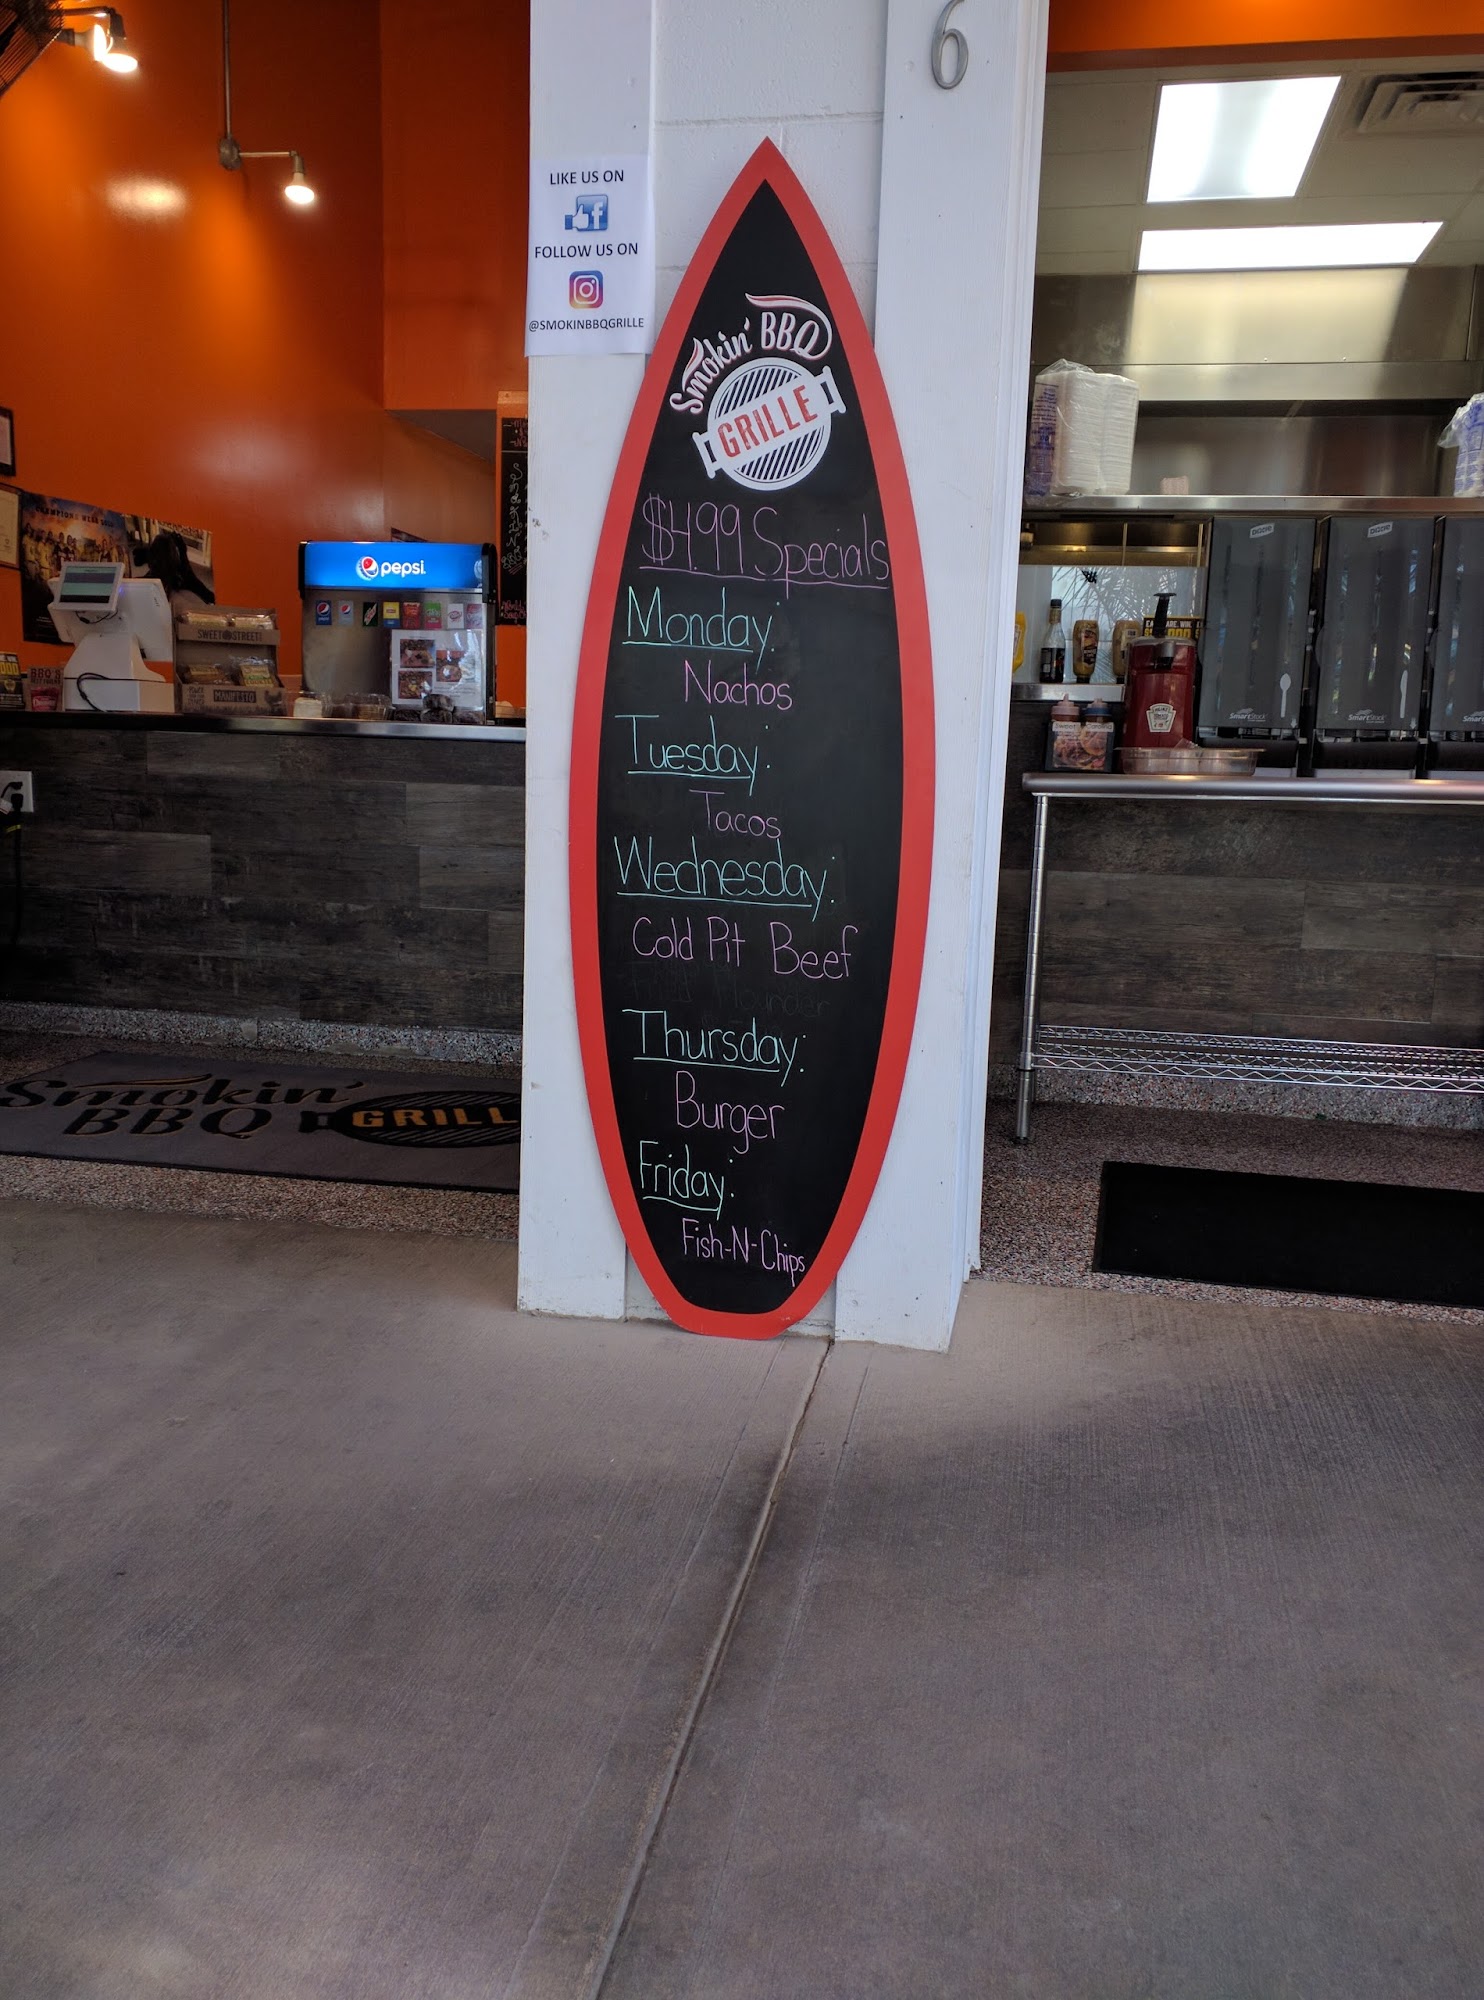 6
LIKE US ON
f
FOLLOW US ON
@SMOKINBBQGRILLE
Smokin' BBQ
GRILLE
$4.99 Specials
Monday:
Nachos
Tuesday:
Tacos
Wednesday:
Cold Pit Beef
Fried Flounder
Thursday:
Burger
Friday:
Fish-N-Chips
pepsi
SWEET STREET
Smokin'
BBQ GRILL
HEINZ
SmartStock
SmartStock